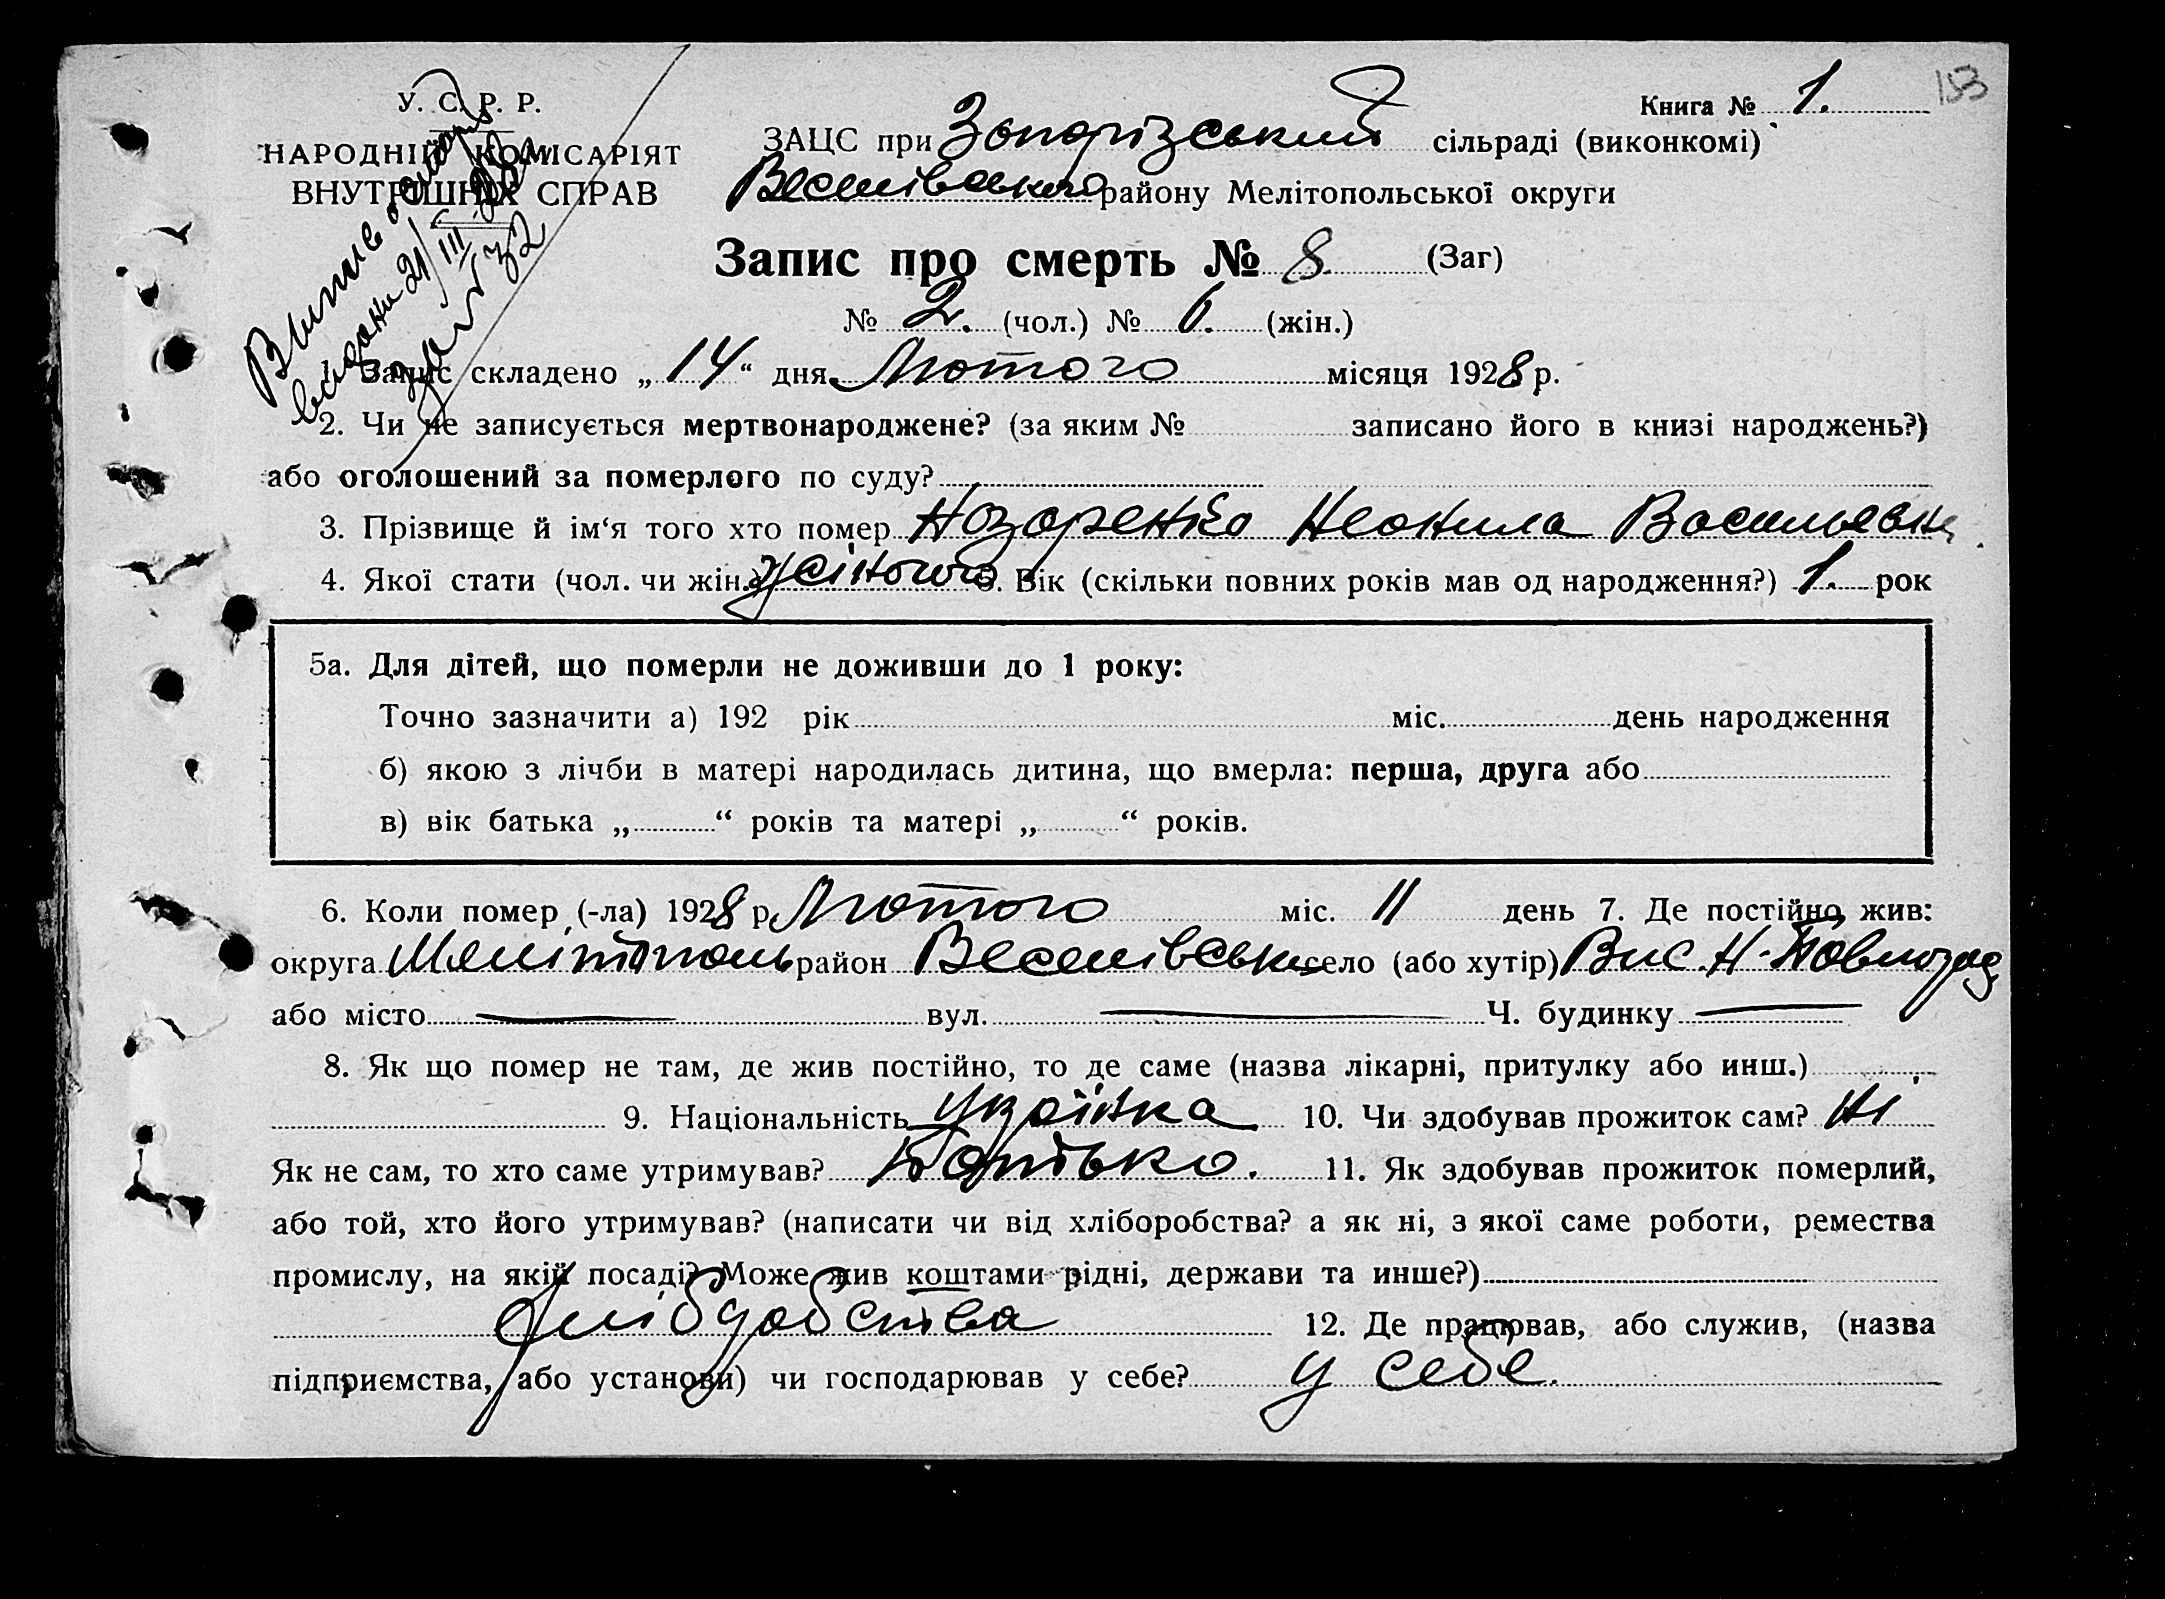 153
У. С. Р. Р.
НАРОДНІЙ КОМІСАРІЯТ
ВНУТРІШНІХ СПРАВ
Книга № 1.
ЗАЦС при Запорізський сільраді (виконкомі)
Веселівського району Мелітопольської округи
Запис про смерть № 8. (Заг)
№ 2. (чол.) № 6. (жін.)
Випис
видани 21/III
за № 32
1. Запис складено „14“ дня Лютого місяця 1928 р.
2. Чи не записується мертвонароджене? (за яким № записано його в книзі народжень?)
або оголошений за померлого по суду?
3. Прізвище й ім‘я того хто помер Назаренко Неонила Васильевна
4. Якої стати (чол. чи жін.) жіночого 5. Вік (скільки повних років мав од народження?) 1. рок
5а. Для дітей, що померли не доживши до 1 року:
Точно зазначити а) 192 рік міс. день народження
б) якою з лічби в матері народилась дитина, що вмерла: перша, друга або
в) вік батька „ “ років та матері „ “ років.
6. Коли помер (-ла) 1928 р. Лютого міс. 11 день 7. Де постійно жив:
округа Мелітополь район Веселівськ село (або хутір) Вис. Н-Павлоград
або місто — вул. — Ч. будинку —
8. Як що помер не там, де жив постійно, то де саме (назва лікарні, притулку або инш.)
9. Національність Украінка 10. Чи здобував прожиток сам? Ні
Як не сам, то хто саме утримував? Батько. 11. Як здобував прожиток померлий,
або той, хто його утримував? (написати чи від хліборобства? а як ні, з якої саме роботи, ремества
промислу, на якій посаді? Може жив коштами рідні, держави та инше?)
Хлібробства 12. Де працював, або служив, (назва
підприємства, або установи) чи господарював у себе? у себе.